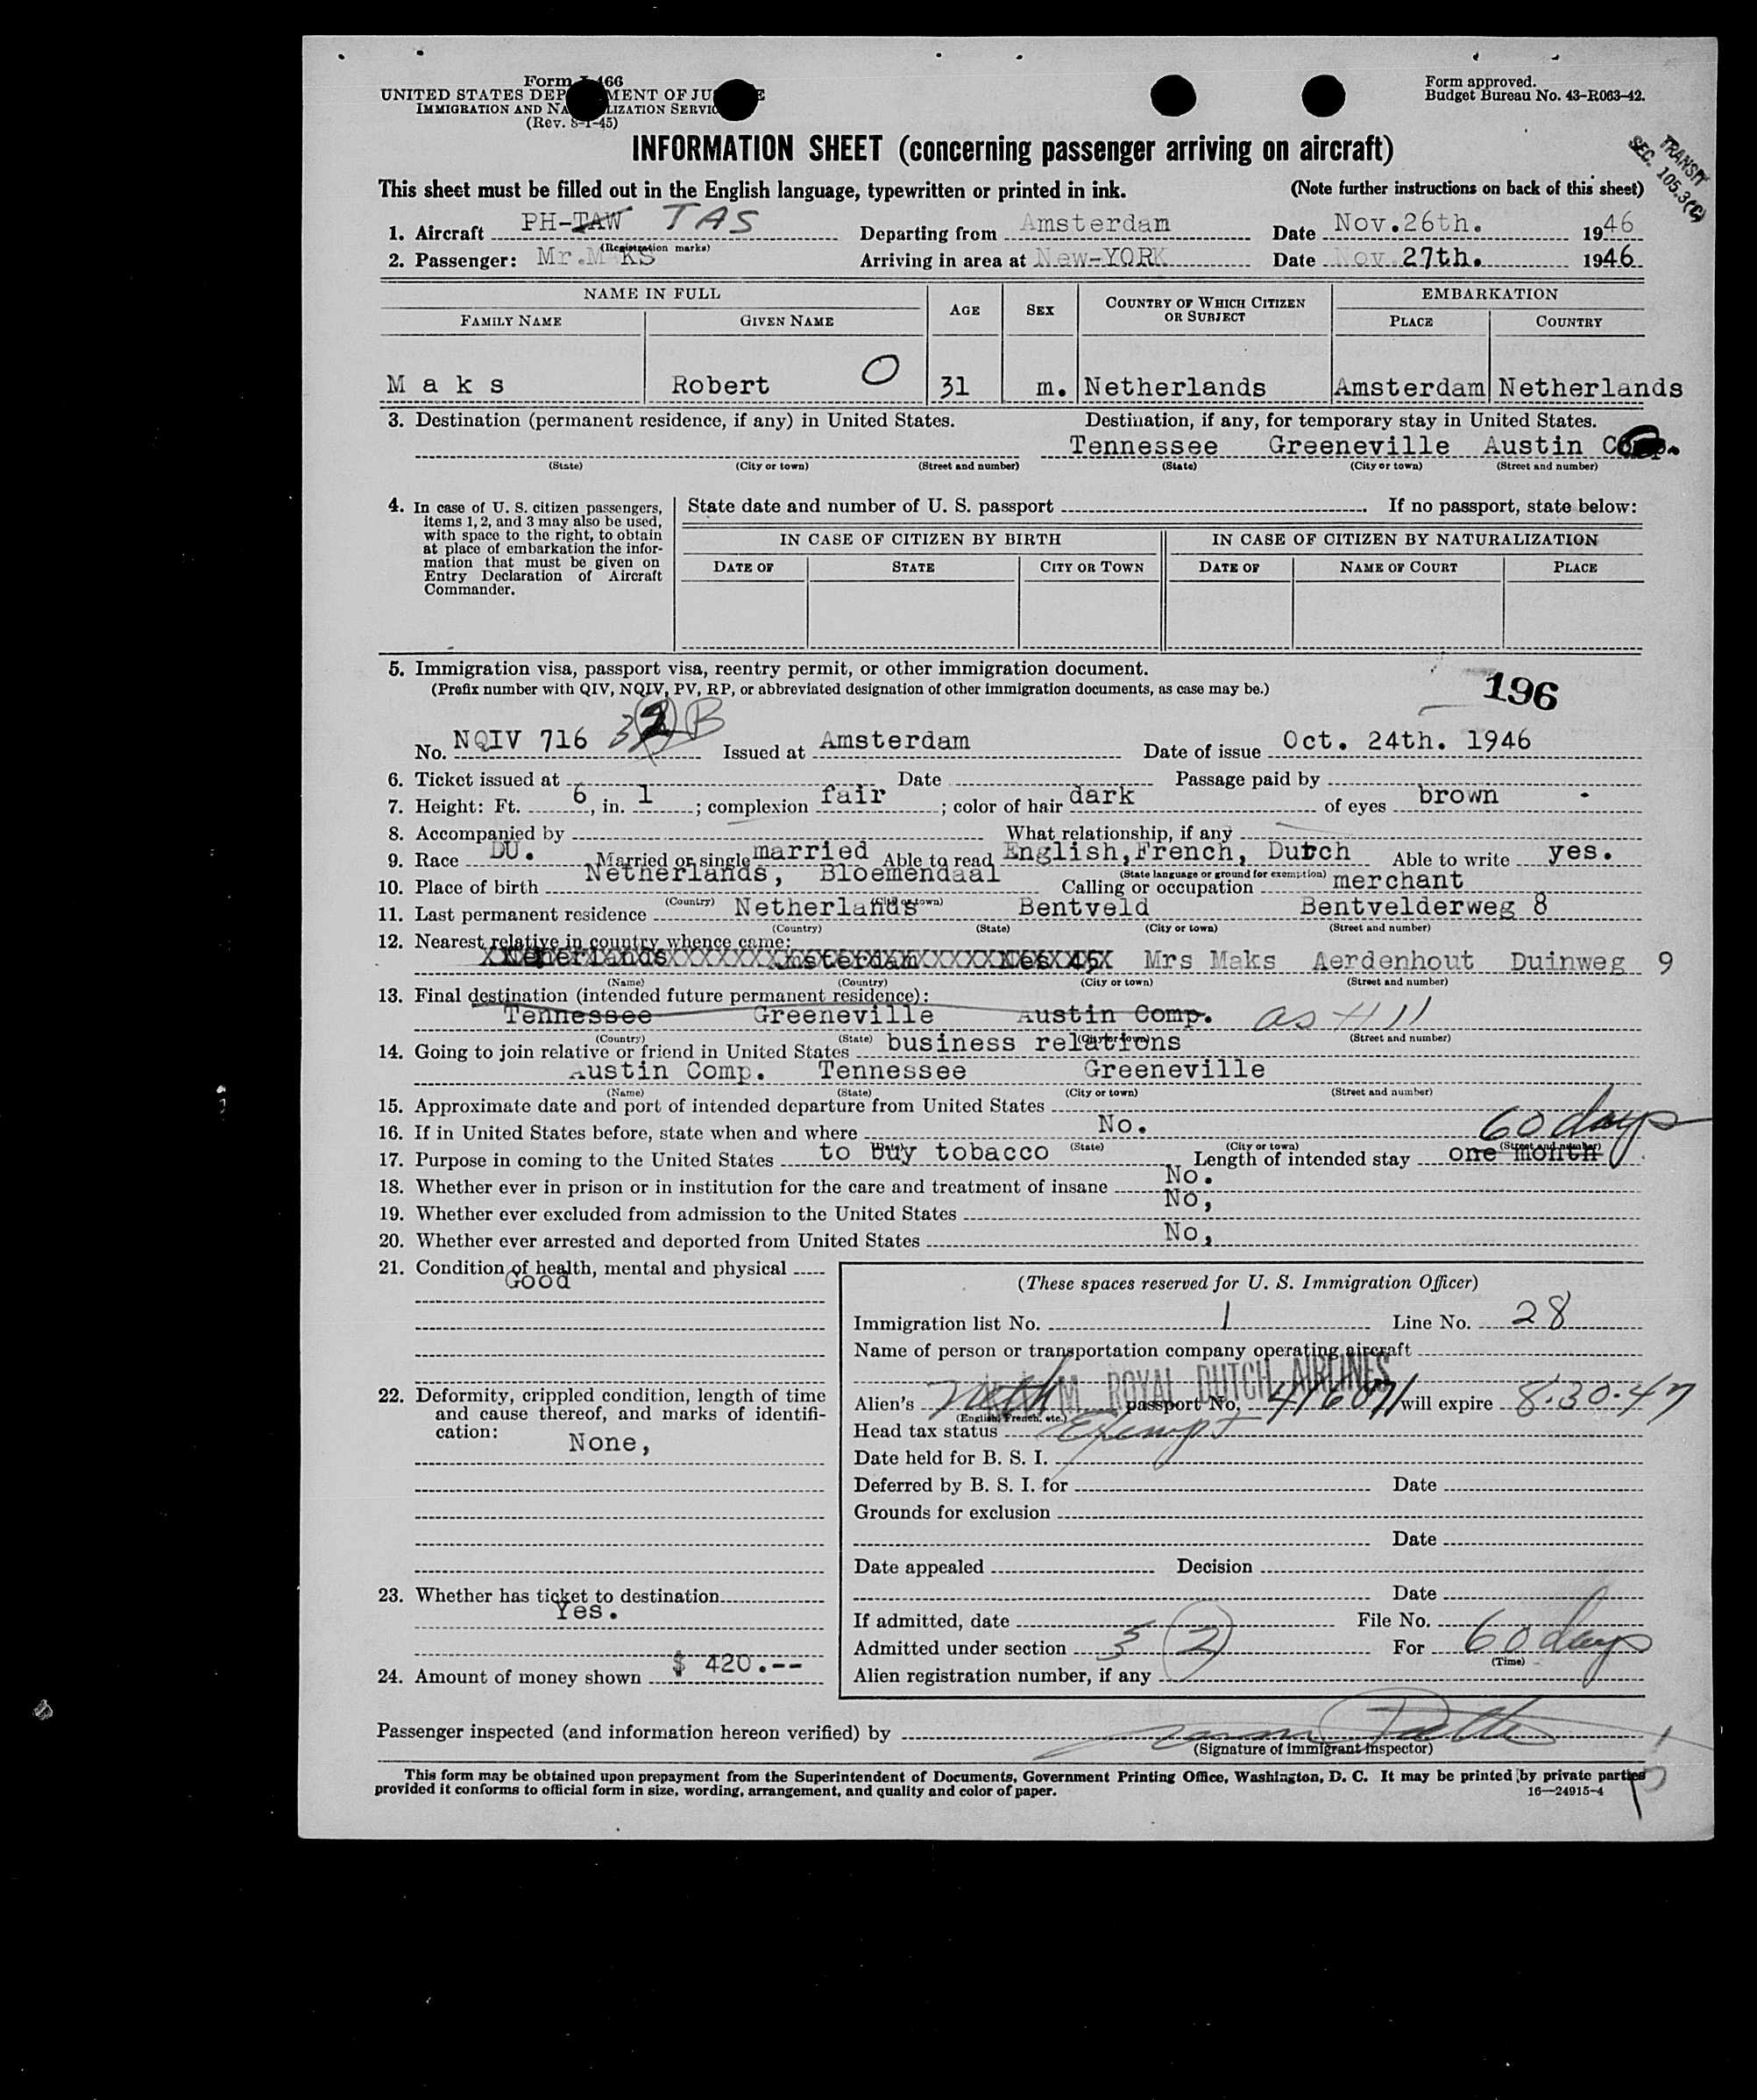 Form I-466
UNITED STATES DEPARTMENT OF JUSTICE
IMMIGRATION AND NATURALIZATION SERVICE
(Rev. 8-1-45)
Form approved.
Budget Bureau No. 43-R063-42.
TRANSIT
SEC. 105.3(C)
INFORMATION SHEET (concerning passenger arriving on aircraft)
This sheet must be filled out in the English language, typewritten or printed in ink. (Note further instructions on back of this sheet)
1. Aircraft PH-TAW TAS Departing from Amsterdam Date Nov.26th. 1946
(Registration marks)
2. Passenger: Mr.MaKS Arriving in area at New-YORK Date Nov.27th. 1946
NAME IN FULL AGE SEX COUNTRY OF WHICH CITIZEN OR SUBJECT EMBARKATION
FAMILY NAME GIVEN NAME PLACE COUNTRY
M a k s Robert O 31 m. Netherlands Amsterdam Netherlands
3. Destination (permanent residence, if any) in United States. Destination, if any, for temporary stay in United States.
Tennessee Greeneville Austin Comp.
(State) (City or town) (Street and number) (State) (City or town) (Street and number)
4. In case of U. S. citizen passengers, items 1, 2, and 3 may also be used, with space to the right, to obtain at place of embarkation the information that must be given on Entry Declaration of Aircraft Commander.
State date and number of U. S. passport If no passport, state below:
IN CASE OF CITIZEN BY BIRTH IN CASE OF CITIZEN BY NATURALIZATION
DATE OF STATE CITY OR TOWN DATE OF NAME OF COURT PLACE
5. Immigration visa, passport visa, reentry permit, or other immigration document.
(Prefix number with QIV, NQIV, PV, RP, or abbreviated designation of other immigration documents, as case may be.)
196
No. NQIV 716 3 2 B Issued at Amsterdam Date of issue Oct. 24th. 1946
6. Ticket issued at Date Passage paid by
7. Height: Ft. 6, in. 1; complexion fair; color of hair dark of eyes brown
8. Accompanied by What relationship, if any
9. Race DU. Married or single married Able to read English,French, Dutch Able to write yes.
(State language or ground for exemption)
10. Place of birth Netherlands, Bloemendaal Calling or occupation merchant
(Country) (City or town)
11. Last permanent residence Netherlands Bentveld Bentvelderweg 8
(Country) (State) (City or town) (Street and number)
12. Nearest relative in country whence came:
Mrs Maks Aerdenhout Duinweg 9
(Name) (Country) (City or town) (Street and number)
13. Final destination (intended future permanent residence):
Tennessee Greeneville Austin Comp. as # 11
(Country) (State) (City or town) (Street and number)
14. Going to join relative or friend in United States business relations
Austin Comp. Tennessee Greeneville
(Name) (State) (City or town) (Street and number)
15. Approximate date and port of intended departure from United States
16. If in United States before, state when and where No.
(State) (City or town) (Street and number)
60 days
17. Purpose in coming to the United States to buy tobacco Length of intended stay one month
18. Whether ever in prison or in institution for the care and treatment of insane No.
19. Whether ever excluded from admission to the United States No,
20. Whether ever arrested and deported from United States No,
21. Condition of health, mental and physical
Good
22. Deformity, crippled condition, length of time and cause thereof, and marks of identification:
None,
23. Whether has ticket to destination
Yes.
24. Amount of money shown $ 420.--
(These spaces reserved for U. S. Immigration Officer)
Immigration list No. 1 Line No. 28
Name of person or transportation company operating aircraft
K.L.M. ROYAL DUTCH AIRLINES
Alien's Neth passport No. 41607 will expire 8-30-47
(English, French, etc.)
Head tax status Exempt
Date held for B. S. I.
Deferred by B. S. I. for Date
Grounds for exclusion
Date
Date appealed Decision
Date
If admitted, date File No.
Admitted under section 3 (2) For 60 days
(Time)
Alien registration number, if any
Passenger inspected (and information hereon verified) by
(Signature of immigrant inspector)
This form may be obtained upon prepayment from the Superintendent of Documents, Government Printing Office, Washington, D. C. It may be printed by private parties
provided it conforms to official form in size, wording, arrangement, and quality and color of paper. 16—24915-4